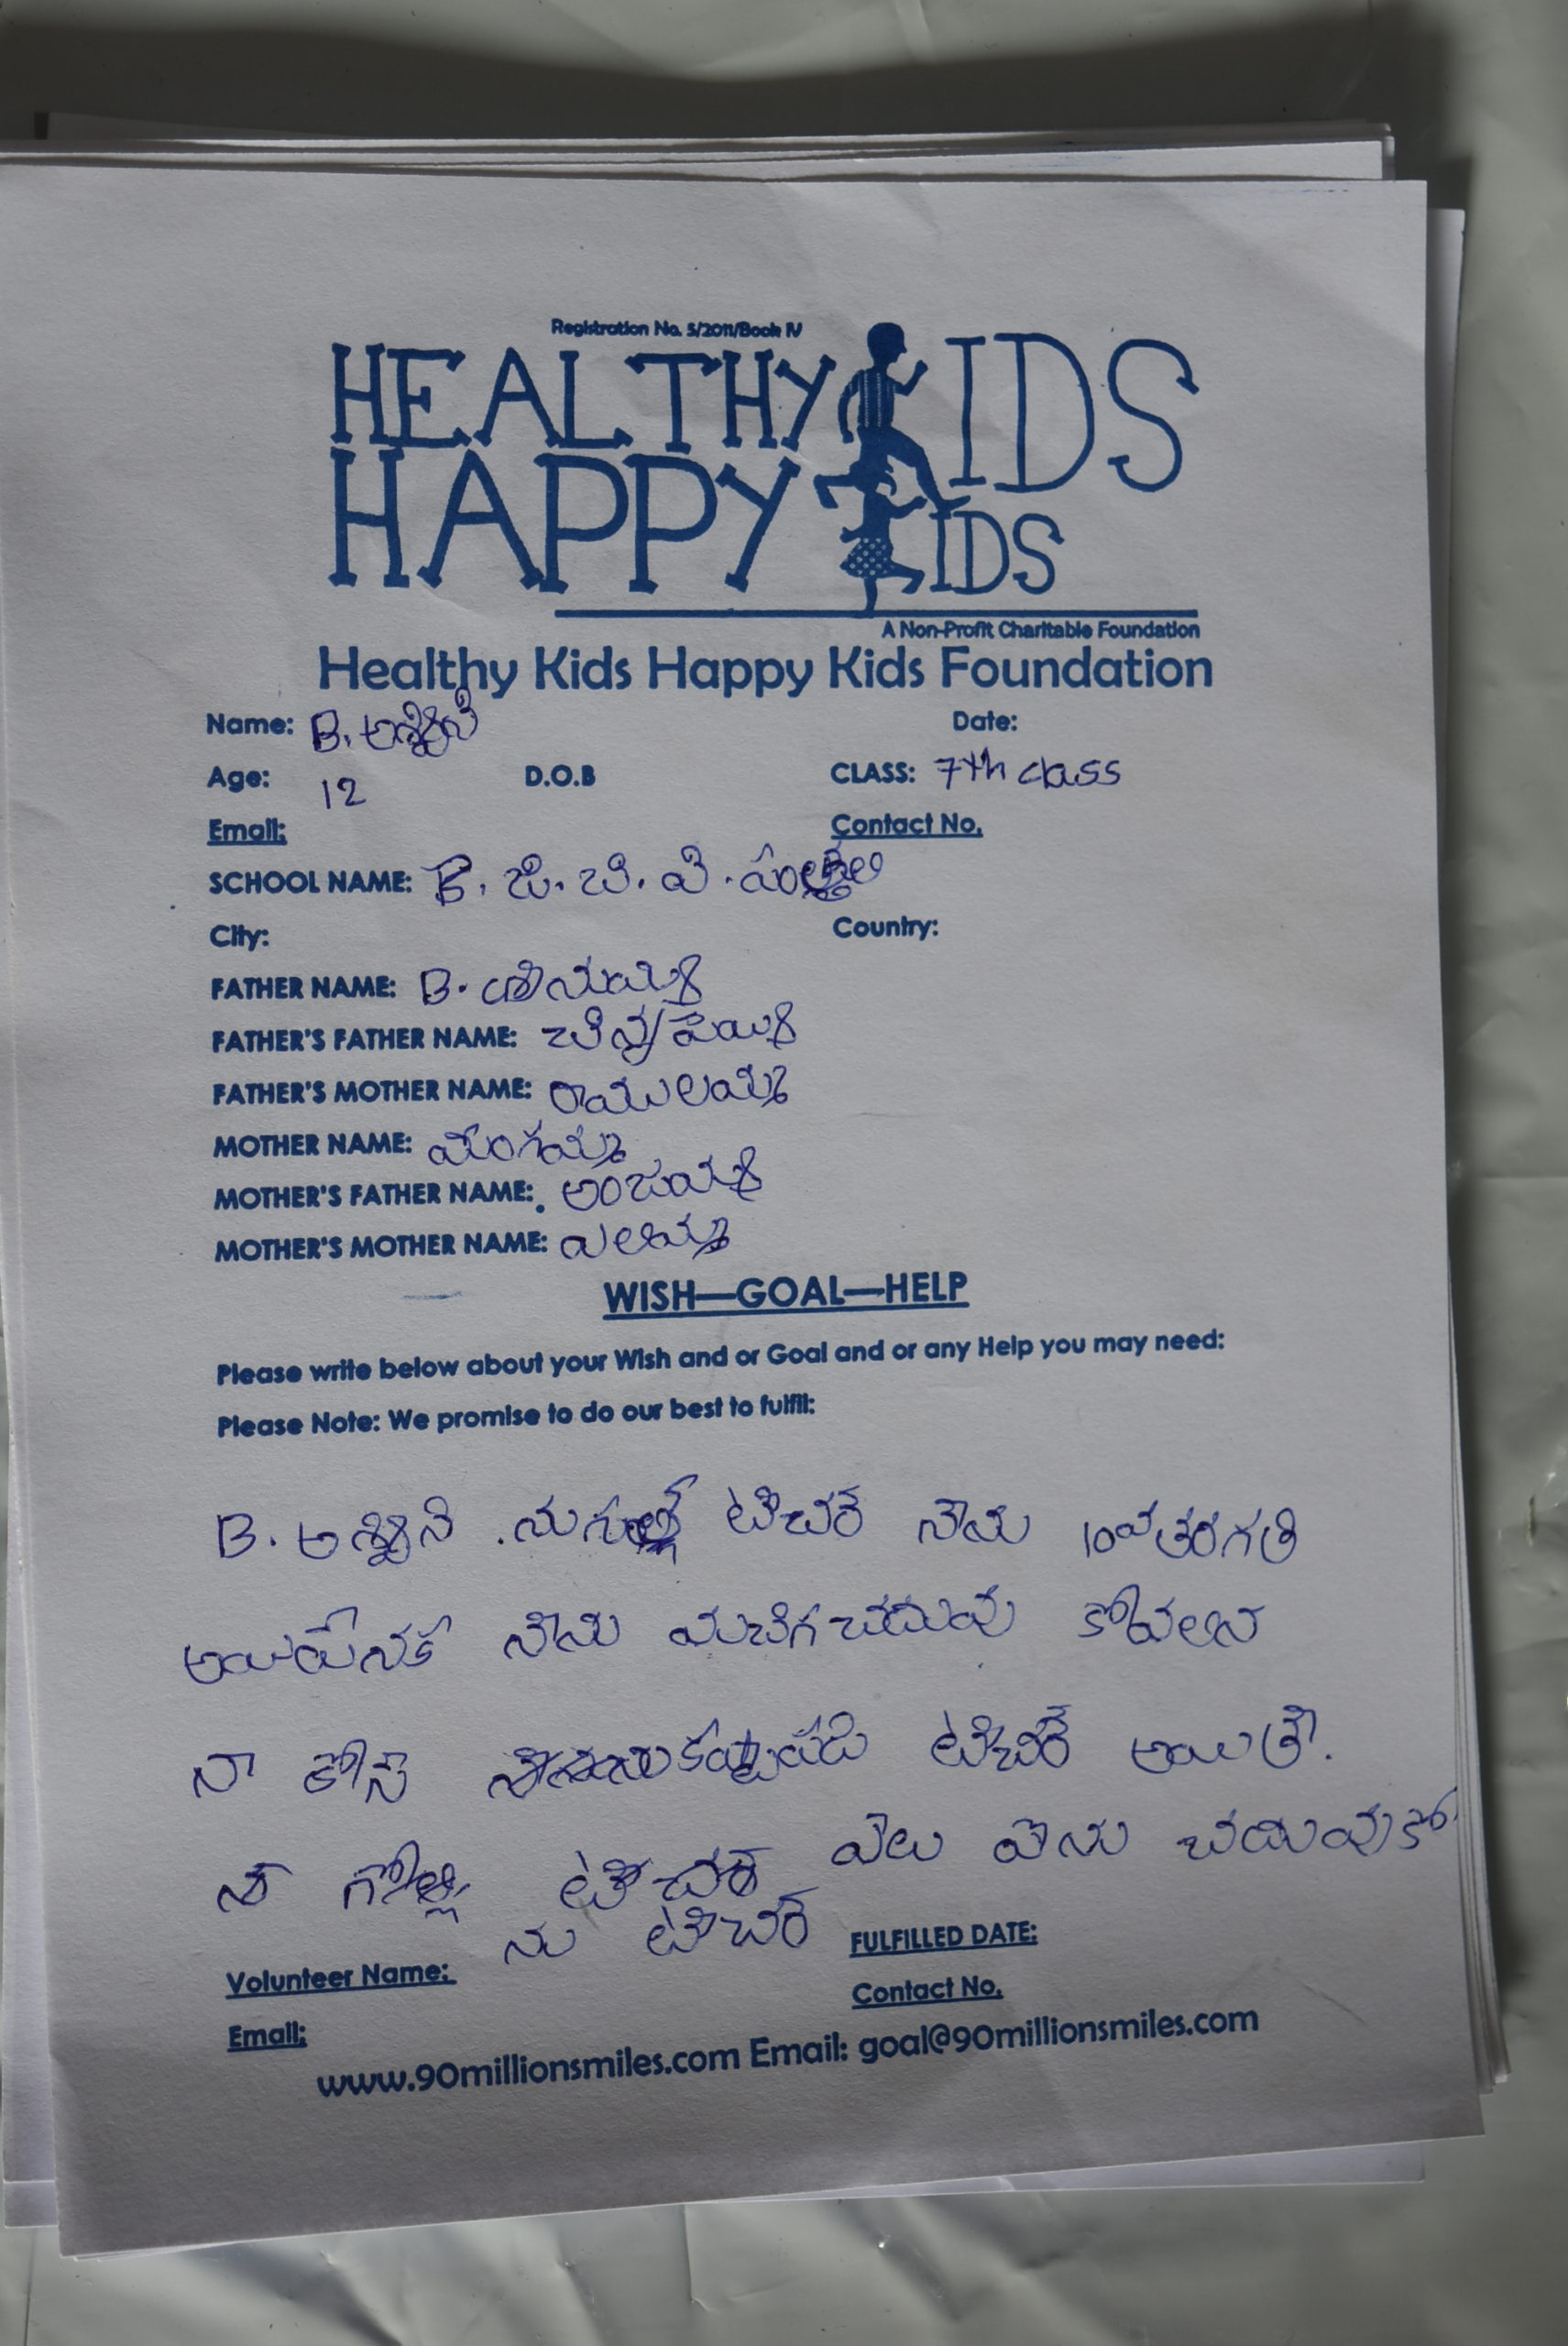 Registration No. 5/2011/Book IV
HEALTHY KIDS
HAPPY KIDS
A Non-Profit Charitable Foundation
Healthy Kids Happy Kids Foundation
Name: B. అశ్విని Date:
Age: 12 D.O.B CLASS: 7th class
Email: Contact No.
SCHOOL NAME: కె. జి. బి. వి.
City: Country:
FATHER NAME: B. శ్రీనయ్య
FATHER'S FATHER NAME: చిన్నపెయ్య
FATHER'S MOTHER NAME: రాములమ్మ
MOTHER NAME: మంగమ్మ
MOTHER'S FATHER NAME: అంజయ్య
MOTHER'S MOTHER NAME: ఎలమ్మ
WISH—GOAL—HELP
Please write below about your Wish and or Goal and or any Help you may need:
Please Note: We promise to do our best to fulfil:
B. అశ్విని టిచర్ నెను 10వ తరగతి
నెను మచిగ చదువు కోవలన
నా కోస కష్టపడి టిచర్ అయితె.
నా గోల్ల టిచర్ చదువుకో
ను టిచర్
Volunteer Name: FULFILLED DATE:
Email: Contact No.
www.90millionsmiles.com Email: goal@90millionsmiles.com